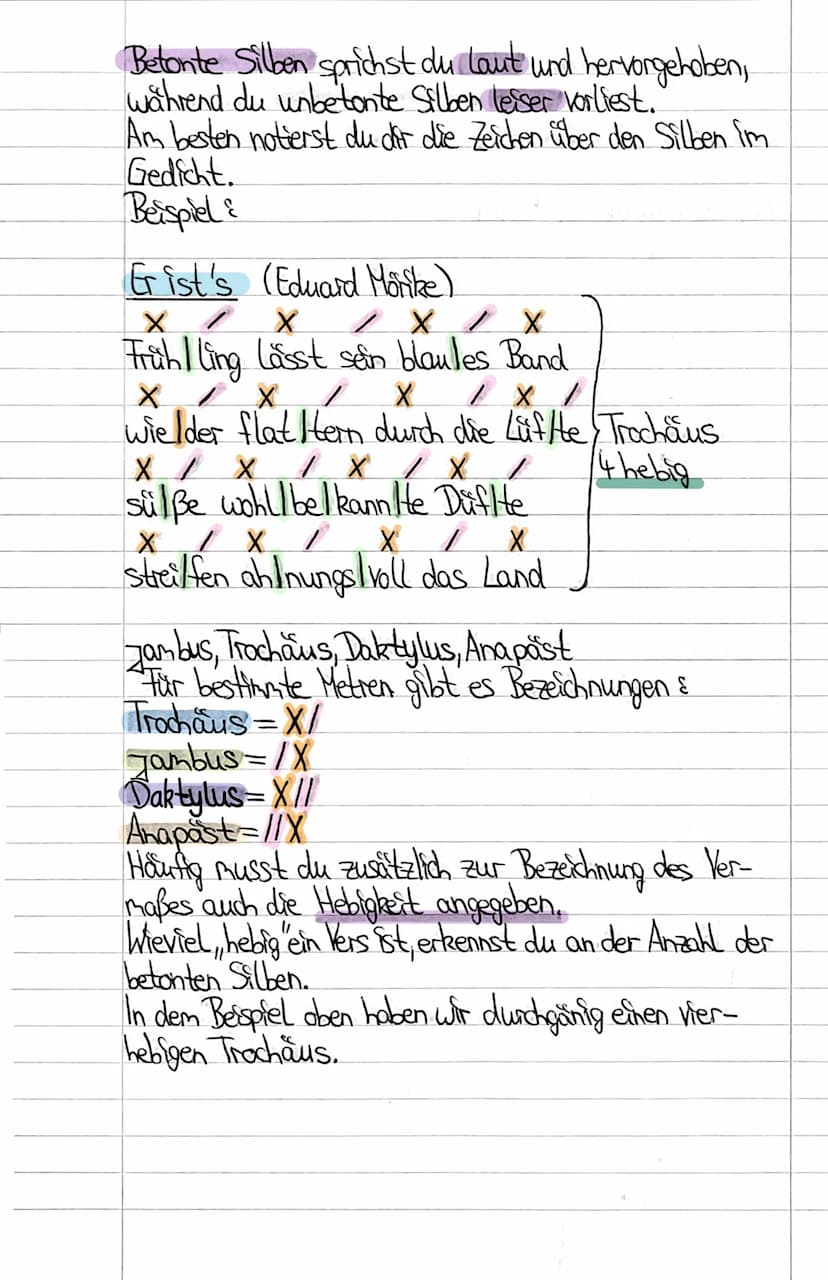 Betonte Silben sprichst du laut und hervorgehoben,
während du unbetonte Silben leiser vorliest.
Am besten notierst du dir die Zeichen über den Silben im
Gedicht.
Beispiel:
Er ist's (Eduard Mörike)
X / X / X / X
Früh|ling lässt sein blau|es Band
X / X / X / X /
wie|der flat|tern durch die Lüf|te
X / X / X / X /
sü|ße wohl|be|kann|te Düf|te
X / X / X / X
strei|fen ah|nungs|voll das Land
Trochäus
4 hebig
Jambus, Trochäus, Daktylus, Anapäst
Für bestimmte Metren gibt es Bezeichnungen:
Trochäus = X/
Jambus = /X
Daktylus = X//
Anapäst = //X
Häufig musst du zusätzlich zur Bezeichnung des Ver-
maßes auch die Hebigkeit angegeben.
Wieviel „hebig" ein Vers ist, erkennst du an der Anzahl der
betonten Silben.
In dem Beispiel oben haben wir durchgänig einen vier-
hebigen Trochäus.